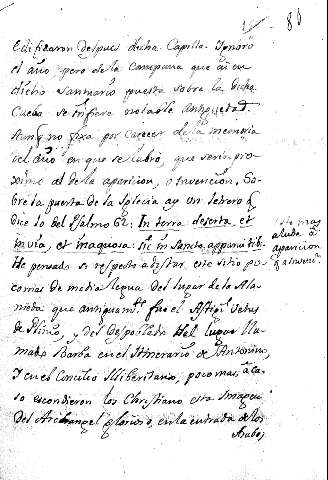 86
Edificaron despues dicha Capilla. Ignoro
el año pero de la Campana que ai en
dicho Santuario puesta sobre la dicha
Cueba se infiere notable antiguedad.
Aunq no fixa por carecer de la memoria
del año en que se labró, que seria pro-
ximo al de la aparicion, o Invencion. So-
bre la puerta de la Iglecia ay un letrero q
dice lo del Psalmo 62: In terra deserta, et
invia, et inaquosa: sic in Sancto apparui tibi.
He pensado si respecto a distar este sitio po-
co mas de media legua del lugar de la Ala-
meda que antiguam.te fue el Astigi Vetus
de Plinio, y del despoblado del lugar lla-
mado Barba en el Itinerario de Antonino,
y en el Concilio Illiberitano, poco mas, aca-
so escondieron los Christianos esta Imagen
del Archangel glorioso, en la entrada de los
Arabes
esto mas
alude a
aparicion
q a Inven.n